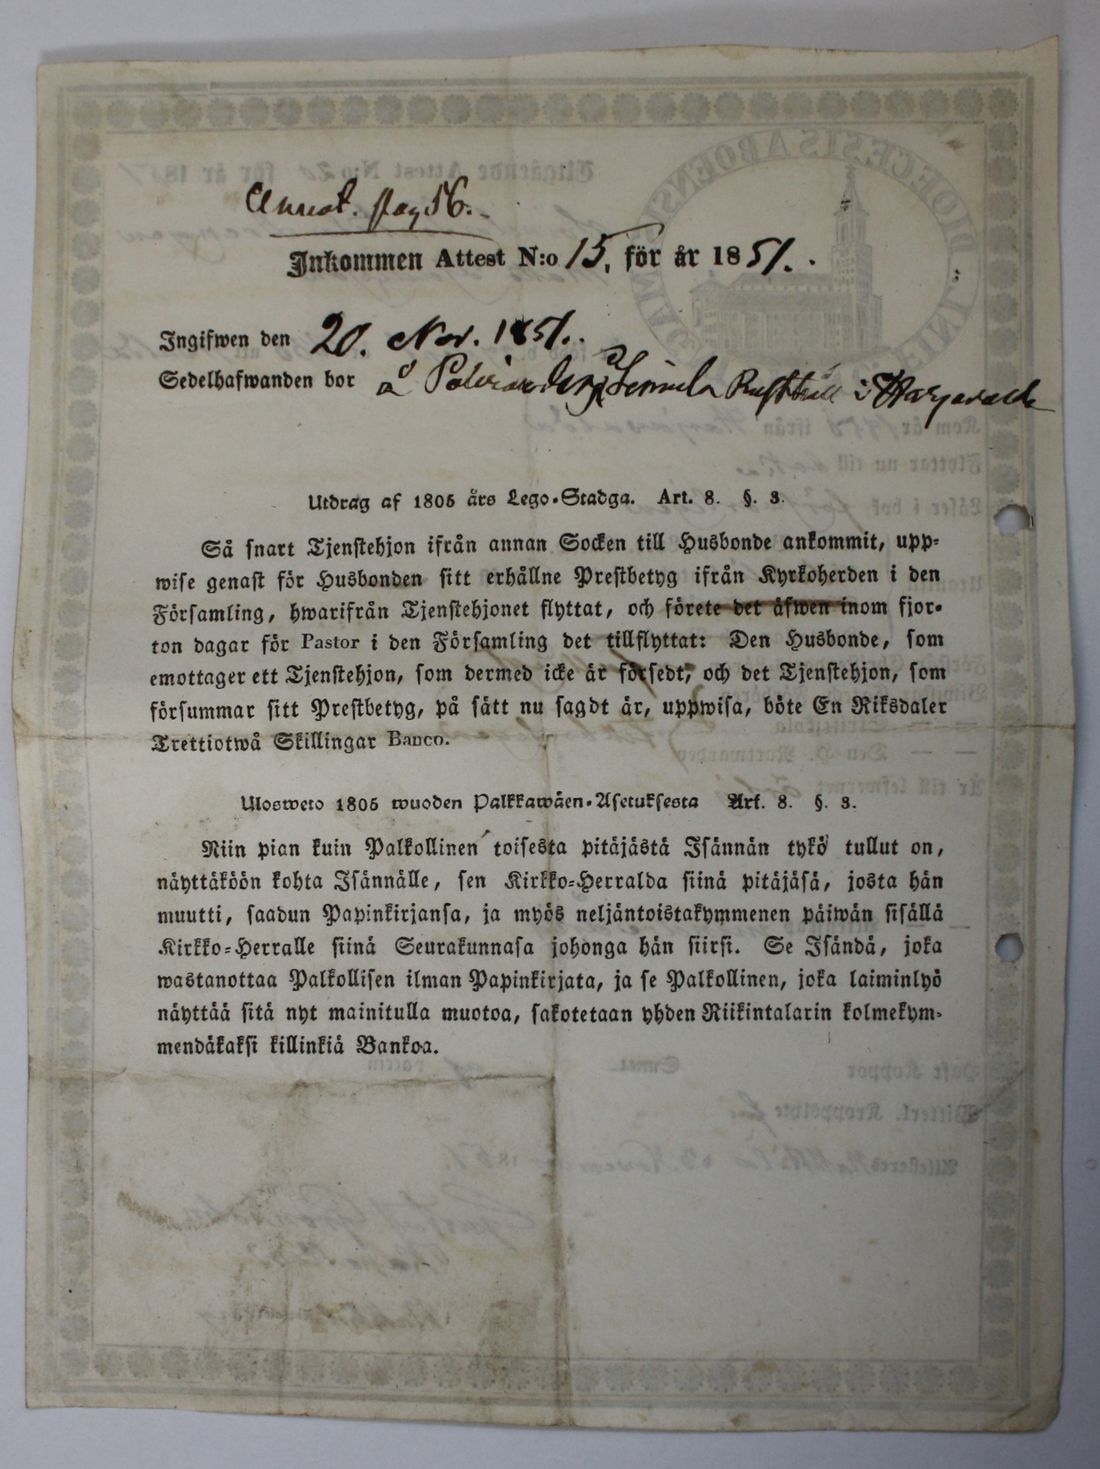 Annot. pag 56.
Inkommen Attest N:o 15, för år 1851.
Ingifwen den 20. Nov. 1851.
Sedelhafwanden bor å
Utdrag af 1805 års Lego-Stadga. Art. 8. §. 3.
Så snart Tjenstehjon ifrån annan Socken till Husbonde ankommit, upp-
wise genast för Husbonden sitt erhållne Prestbetyg ifrån Kyrkoherden i den
Församling, hwarifrån Tjenstehjonet flyttat, och förete det äfwen inom fjor-
ton dagar för Pastor i den Församling det tillflyttat: Den Husbonde, som
emottager ett Tjenstehjon, som dermed icke är försedt, och det Tjenstehjon, som
försummar sitt Prestbetyg, på sätt nu sagdt är, uppwisa, böte En Riksdaler
Trettiotwå Skillingar Banco.
Ulosweto 1805 wuoden Palkkawäen-Asetuksesta Art. 8. §. 3.
Niin pian kuin Palkollinen toisesta pitäjästä Isännän tykö tullut on,
näyttäköön kohta Isännälle, sen Kirkko-Herralda siinä pitäjäsä, josta hän
muutti, saadun Papinkirjansa, ja myös neljäntoistakymmenen päiwän sisällä
Kirkko-Herralle siinä Seurakunnasa johonga hän siirsi. Se Isändä, joka
wastanottaa Palkollisen ilman Papinkirjata, ja se Palkollinen, joka laiminlyö
näyttää sitä nyt mainitulla muotoa, sakotetaan yhden Riikintalarin kolmekym-
mendäkaksi killinkiä Bankoa.